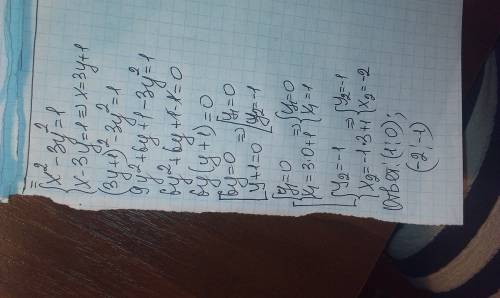 {x²-3y²=1
{x-3y=1 => x=3y+1
(3y+1)²-3y²=1
9y²+6y+1-3y²=1
6y²+6y+1-1=0
6y(y+1)=0
[6y=0 => [y₁=0
[y+1=0 [y₂=-1
[{y=0 => {y₁=0
{x₁=3·0+1 {x₁=1
{y₂=-1 => y₂=-1
{x₂=-1·3+1 {x₂=-2
Ответ: (1;0);
(-2;-1)